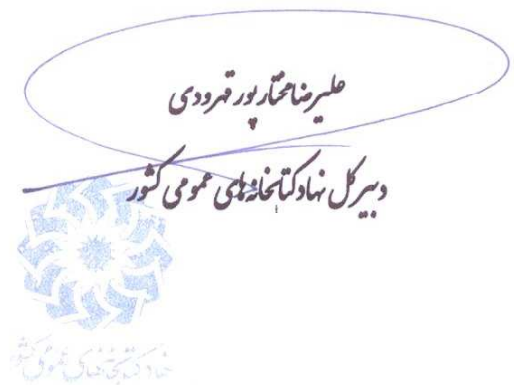 علیرضا مختارپور قهرودی
دبیرکل نهاد کتابخانه‌های عمومی کشور
نهاد کتابخانه‌های عمومی کشور